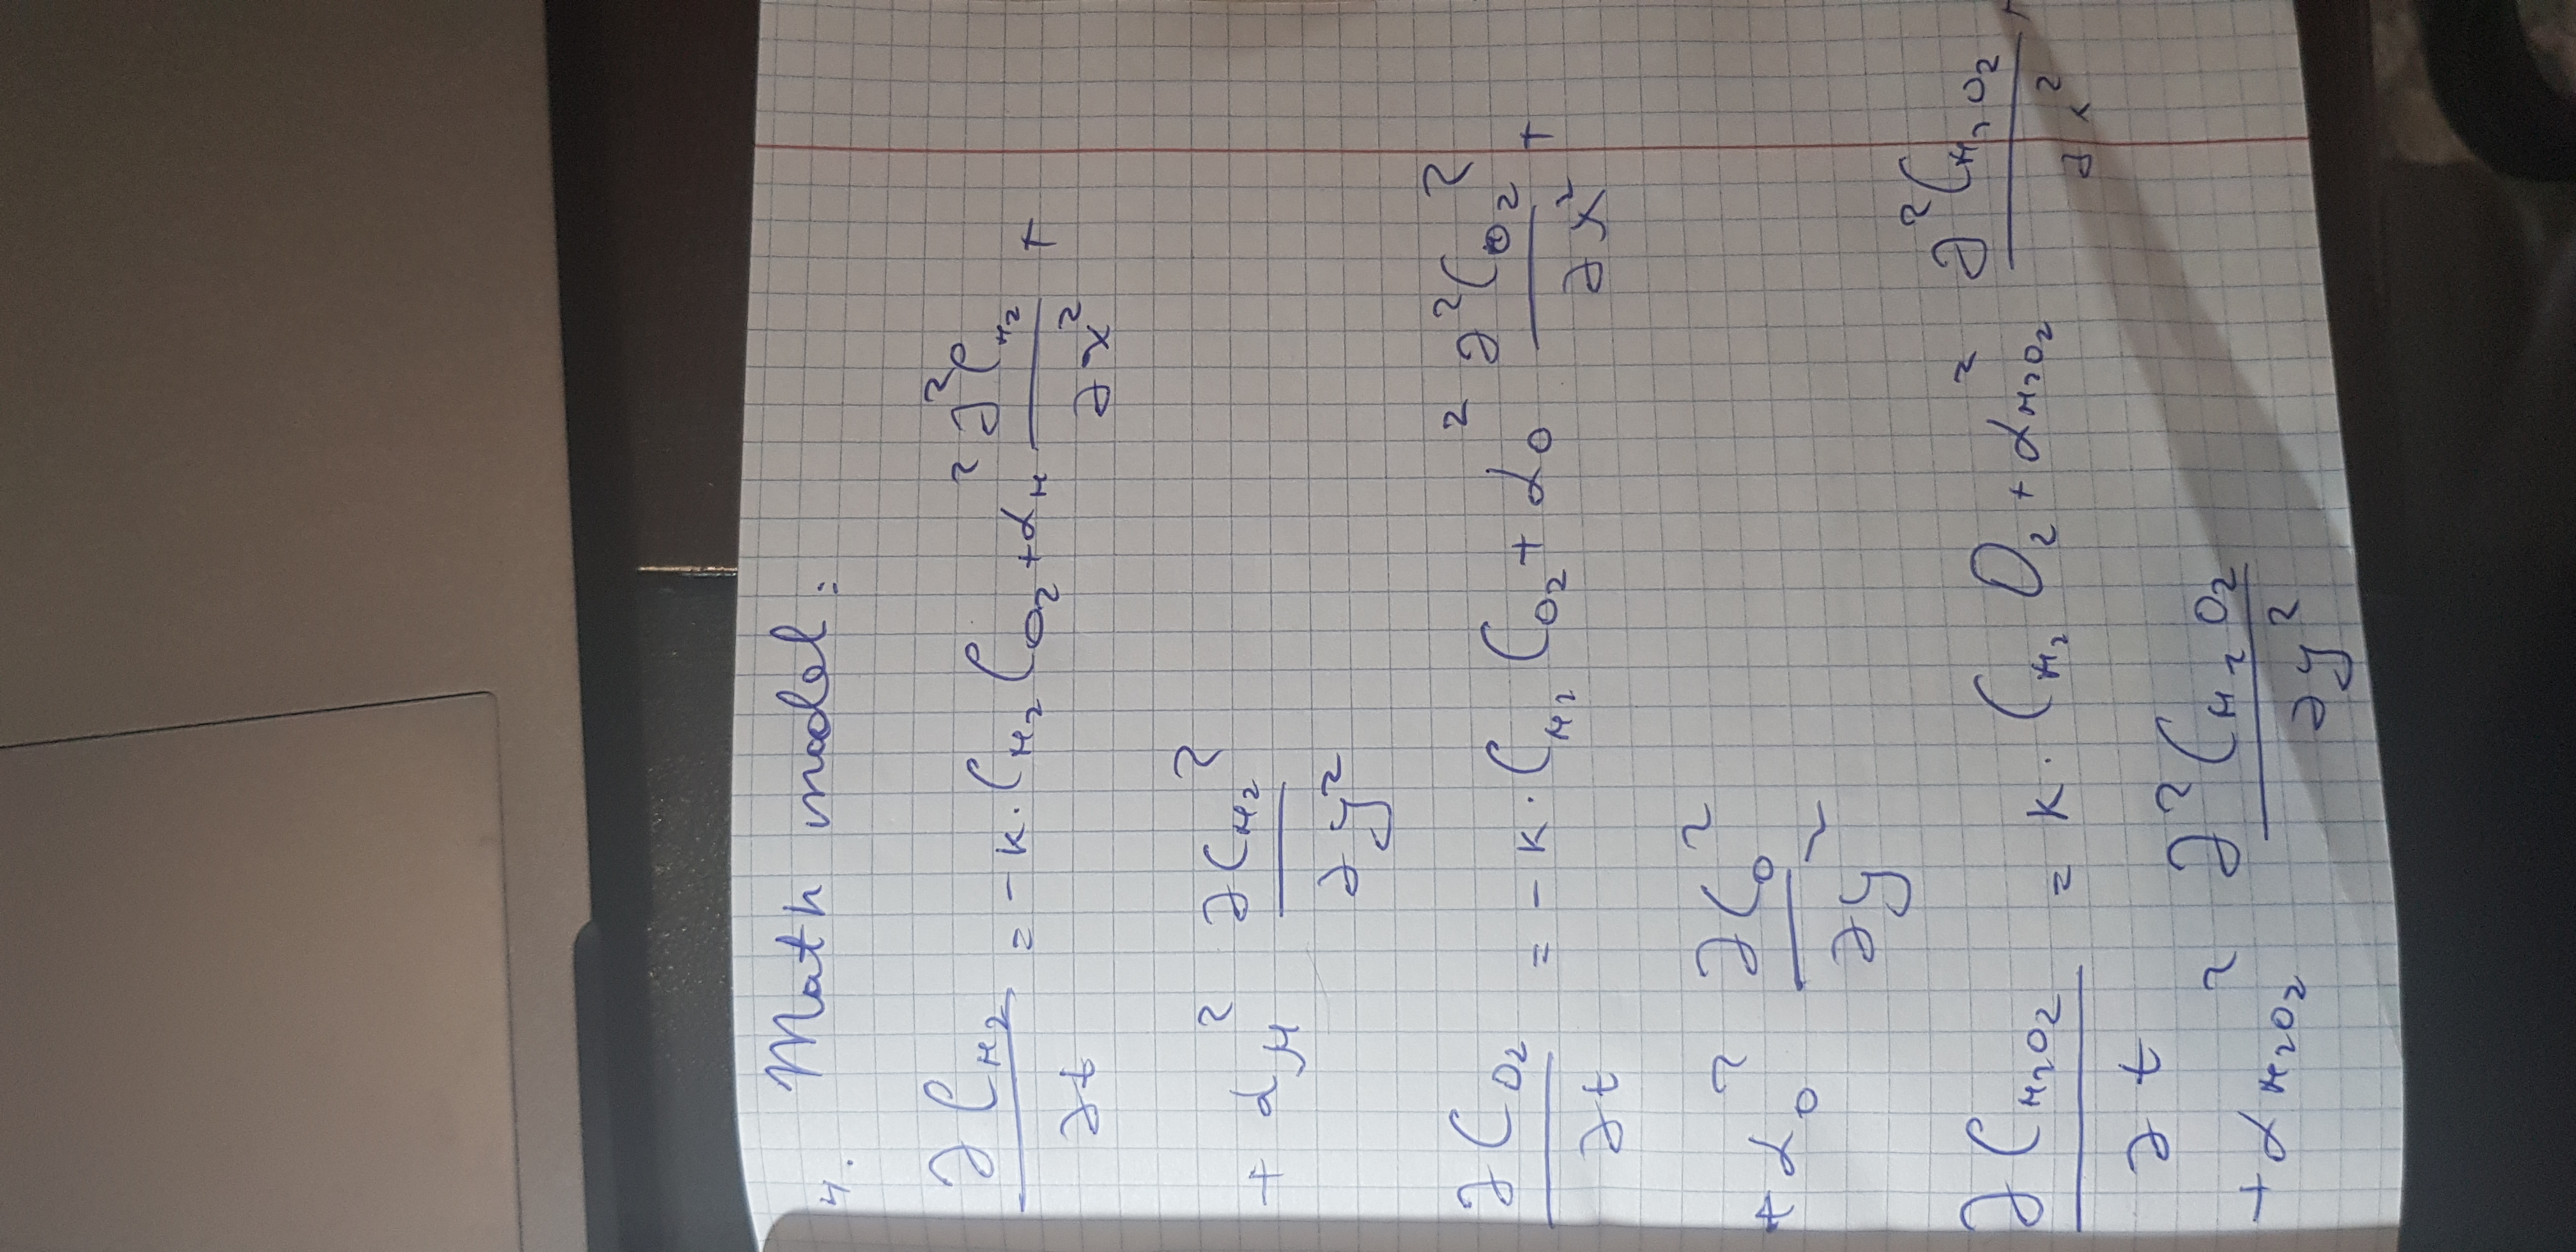 4. Math model:
∂C_H₂/∂t = -K·C_H₂ C_O₂ + α_H² ∂²C_H₂/∂x² +
+ α_H² ∂C_H₂²/∂y²
∂C_O₂/∂t = -K·C_H₂ C_O₂ + α_O² ∂²C_O₂²/∂x² +
+ α_O² ∂C_O²/∂y²
∂C_H₂O₂/∂t = K·C_H₂ O₂ + α_H₂O₂² ∂²C_H₂O₂/∂x² +
+ α_H₂O₂² ∂²C_H₂O₂/∂y²